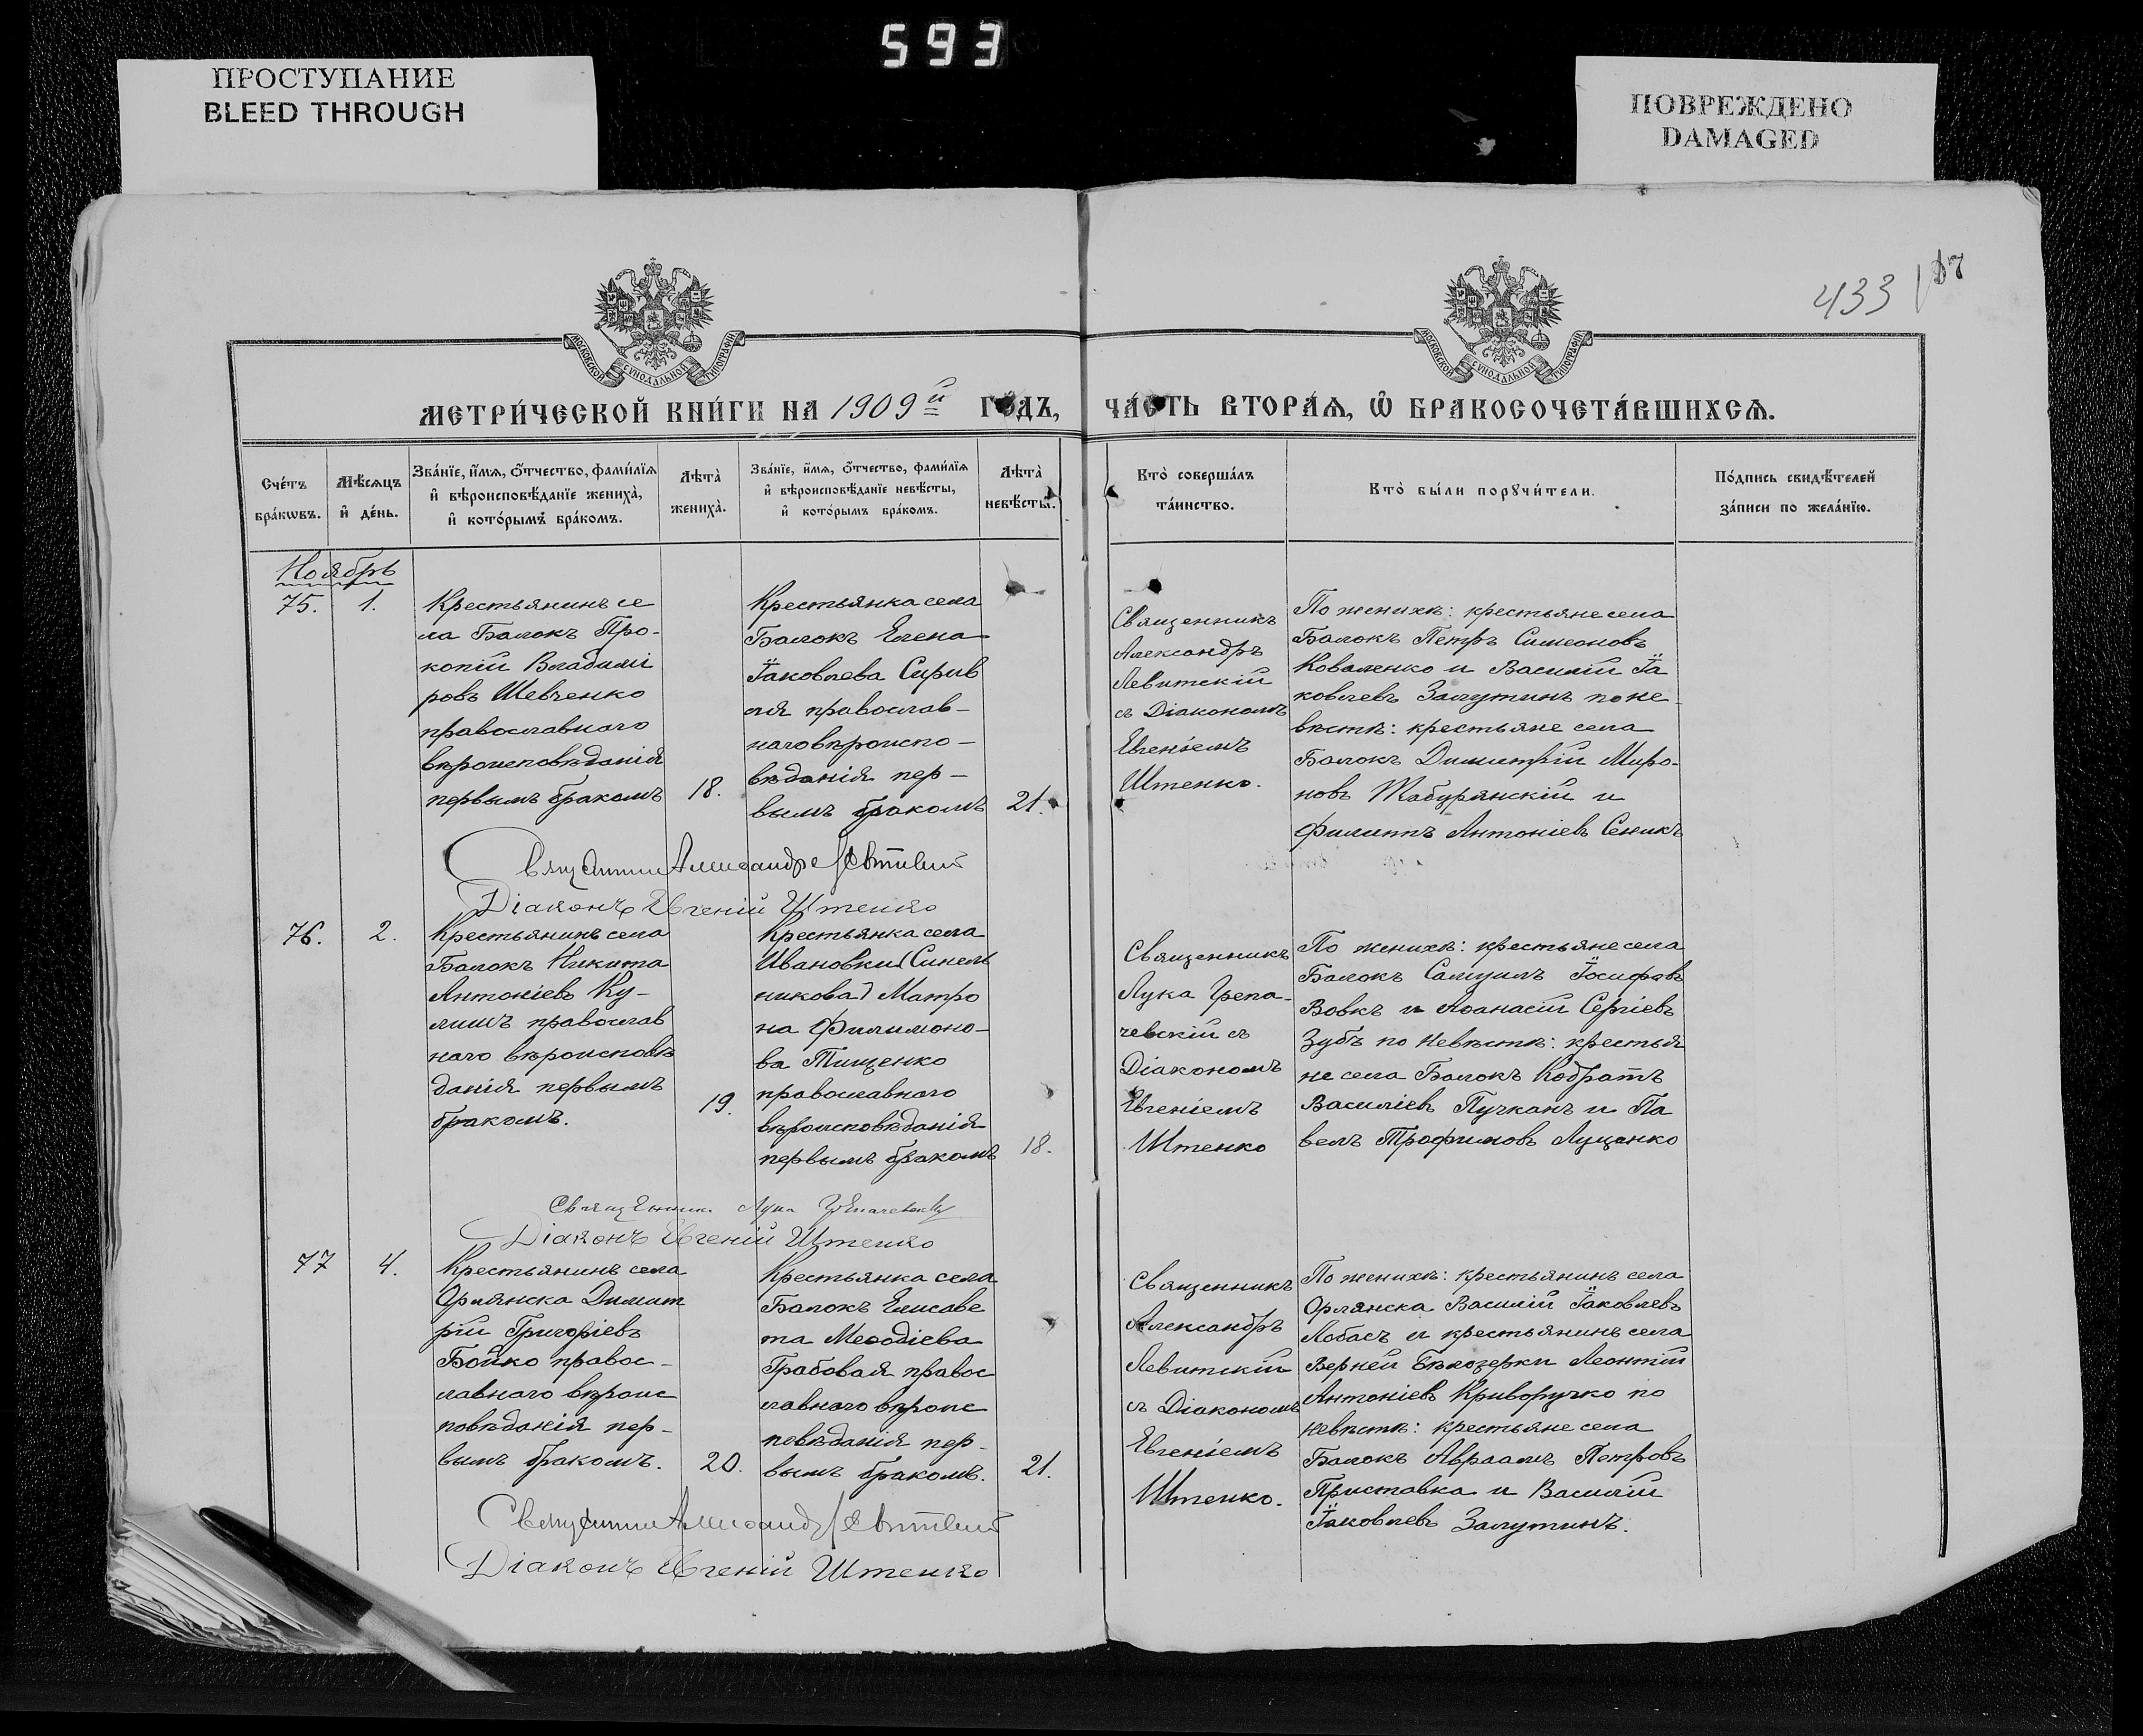 593
ПРОСТУПАНИЕ
BLEED THROUGH
ПОВРЕЖДЕНО
DAMAGED
433
МОСКОВСКОЙ СѴНОДАЛЬНОЙ ТИПОГРАФІИ
МОСКОВСКОЙ СѴНОДАЛЬНОЙ ТИПОГРАФІИ
МЕТРИ́ЧЕСКОЙ КНИ́ГИ НА 1909й ГО́ДЪ,
ЧА́СТЬ ВТОРА́Ѧ, Ѽ БРАКОСОЧЕТА́ВШИХСѦ.
Сче́тъ
бра́кѡвъ.
Мѣ́сѧцъ
и҆ де́нь.
Зва́нїе, и҆́мѧ, ѻ҆́тчество, фами́лїѧ
и҆ вѣроисповѣ́данїе жениха̀,
и҆ кото́рымъ бра́комъ.
Лѣта̀
жениха̀.
Зва́нїе, и҆́мѧ, ѻ҆́тчество, фами́лїѧ
и҆ вѣроисповѣ́данїе невѣ́сты,
и҆ кото́рымъ бра́комъ.
Лѣта̀
невѣ́сты.
Кто̀ соверша́лъ
та́инство.
Кто̀ бы́ли порꙋчи́тели.
По́дпись свидѣ́телей
за́писи по жела́нїю.
Ноябрь
75.
1.
Крестьянинъ се
ла Балокъ Про-
копій Владимі
ровъ Шевченко
православнаго
вѣроисповѣданія
первымъ бракомъ
18.
Крестьянка села
Балокъ Елена
Іаковлева Сирив
ля православ-
наго вѣроиспо-
вѣданія пер-
вымъ бракомъ
21.
Священникъ
Александръ
Левитскій
съ Діакономъ
Евгеніемъ
Штенко.
По женихѣ: крестьяне села
Балокъ Петръ Симеоновъ
Коваленко и Василій Іа
ковлевъ Залутинъ по не-
вѣстѣ: крестьяне села
Балокъ Димитрій Миро-
новъ Жабурянскій и
Филиппъ Антоніевъ Сеникъ
Священникъ Александръ Левитскій
Діаконъ Евгеній Штенко
76.
2.
Крестьянинъ села
Балокъ Никита
Антоніевъ Ку-
лишъ православ
наго вѣроисповѣ
данія первымъ
бракомъ.
19.
Крестьянка села
Ивановки (Синель
никова) Матро
на Филимоно-
ва Тищенко
православнаго
вѣроисповѣданія
первымъ бракомъ
18.
Священникъ
Лука Грепа-
чевскій съ
Діакономъ
Евгеніемъ
Штенко
По женихѣ: крестьяне села
Балокъ Самуилъ Іосифовъ
Вовкъ и Аѳанасій Сергіевъ
Зубъ по невѣстѣ: крестья
не села Балокъ Кодратъ
Василіевъ Пучканъ и Па
велъ Трофимовъ Луценко
Священникъ Лука Грепачевскій
Діаконъ Евгеній Штенко
77
4.
Крестьянинъ села
Орлянска Димит
рій Григоріевъ
Бойко правос-
лавнаго вѣроис
повѣданія пер-
вымъ бракомъ.
20.
Крестьянка села
Балокъ Елисаве
та Меѳодіева
Грабовая правос
лавнаго вѣроис
повѣданія пер-
вымъ бракомъ.
21.
Священникъ
Александръ
Левитскій
съ Діакономъ
Евгеніемъ
Штенко.
По женихѣ: крестьянинъ села
Орлянска Василій Іаковлевъ
Лобасъ и крестьянинъ села
Верней Бѣлозерки Леонтій
Антоніевъ Криворучко по
невѣстѣ: крестьяне села
Балокъ Авраамъ Петровъ
Приставка и Василій
Іаковлевъ Залутинъ.
Священникъ Александръ Левитскій
Діаконъ Евгеній Штенко